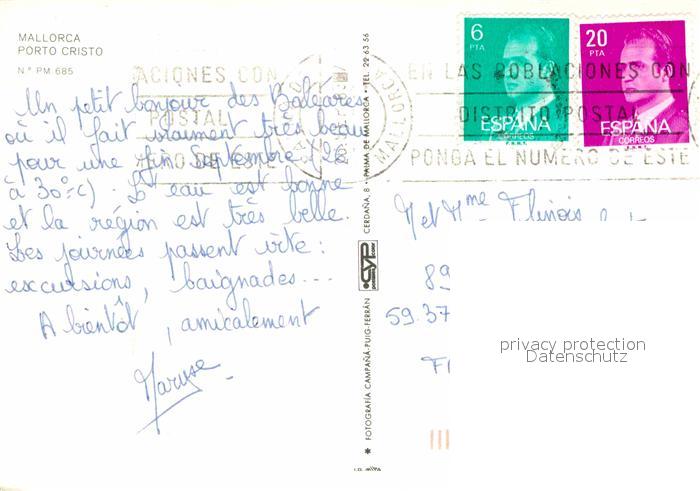 MALLORCA
PORTO CRISTO
N.º PM.685
Un petit bonjour des Baléares
où il fait vraiment très beau
pour une fin Septembre (28
à 30°c). L'eau est bonne
et la région est très belle.
Les journées passent vite:
excursions, baignades...
A bientôt, amicalement
Maryse
ACIONES CON
POSTAL
MALLORCA
EN LAS POBLACIONES CON
DISTRITO POSTAL
PONGA EL NUMERO DE ESTE
6
PTA
ESPAÑA
CORREOS
F.N.M.T.
20
PTA
ESPAÑA
CORREOS
F.N.M.T.
FOTOGRAFÍA CAMPAÑÁ-PUIG-FERRÁN
CYP
CERDAÑA, 8 • PALMA DE MALLORCA • TEL. 29 63 56
M et Mme Flinois
89
59.37
privacy protection
Datenschutz